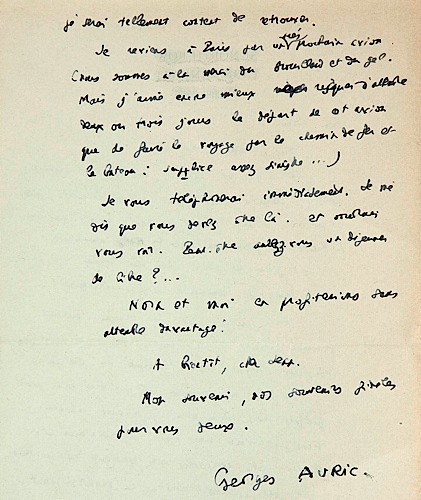 je serai tellement content de retrouver.
Je reviens à Paris par un très prochain avion.
(nous sommes à la merci du brouillard et du gel.
Mais j'aime encore mieux risquer d'attendre
deux ou trois jours le départ de cet avion
que de faire le voyage par le chemin de fer et
le bateau : supplice assez sinistre...)
Je vous téléphonerai immédiatement. Je me
dis que vous devez être là. et voudrais
vous voir. Peut-être aurez-vous un déjeuner
de libre ?...
Nora et moi en profiterions sans
attendre davantage !
A bientôt, cher
Mon souvenir, nos souvenirs fidèles
pour vous deux.
Georges AURIC.